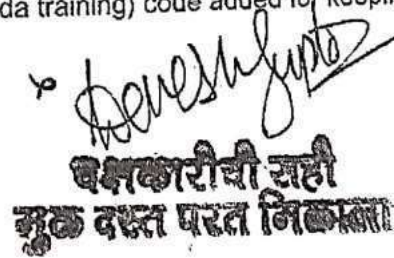 da training) code added for keepin
Denesh Gupta
पक्षकारीची सही
मुळ दस्त परत मिळाला